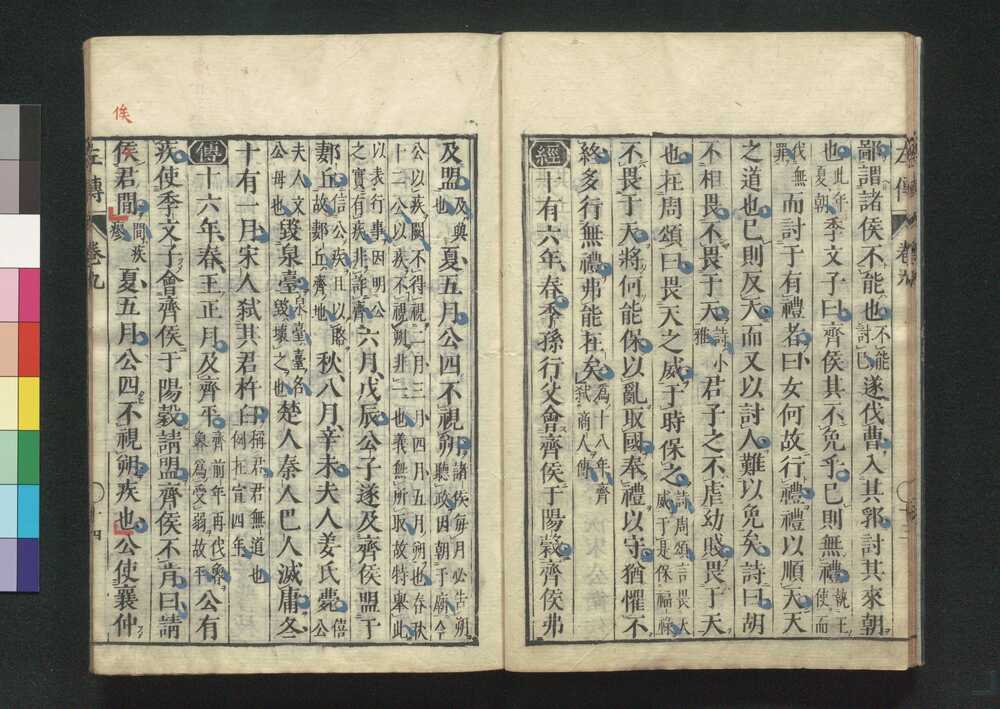 鄙謂諸侯不能也不能討已遂伐曹入其郛討其來朝
也此年夏朝季文子曰齊侯其不免乎已則無禮執王使而
伐無罪而討于有禮者曰女何故行禮禮以順天天
之道也已則反天而又以討人難以免矣詩曰胡
不相畏不畏于天詩小雅君子之不虐幼賤畏于天
也在周頌曰畏天之威于時保之詩周頌言畏天威于是保福祿
不畏于天將何能保以亂取國奉禮以守猶懼不
終多行無禮弗能在矣為十八年齊弒商人傳
經十有六年春季孫行父會齊侯于陽穀齊侯弗
及盟及與也夏五月公四不視朔諸侯每月必告朔聽政因朝于廟今
公以疾闕不得視二月三月四月五月朔也春秋十二公以疾不視朔非一也義無所取故特舉此
以表行事因明公之實有疾非詐齊六月戊辰公子遂及齊侯盟于
郪丘信公疾且以賂故郪丘齊地秋八月辛未夫人姜氏薨僖公
夫人文公母也毀泉臺泉臺臺名毀壞之也楚人秦人巴人滅庸冬
十有一月宋人弒其君杵臼稱君君無道也例在宣四年
傳十六年春王正月及齊平齊前年再伐魯魯為受弱故平公有
疾使季文子會齊侯于陽穀請盟齊侯不肯曰請
俟
侯君間間疾瘳夏五月公四不視朔疾也公使襄仲
左傳 卷九 十四